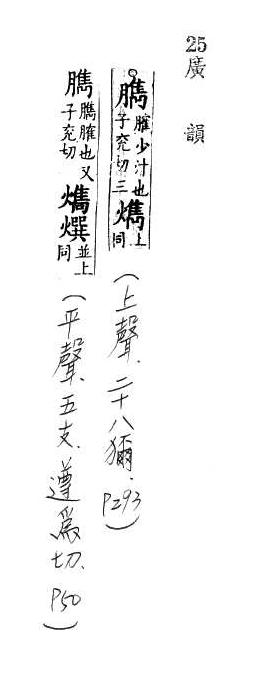 25廣韻
臇臛少汁也子兗切三㷷上同(上聲.二十八獮.P293)
臇臇臛也又子兗切㷷𤏸並上同(平聲.五支.遵為切.P50)